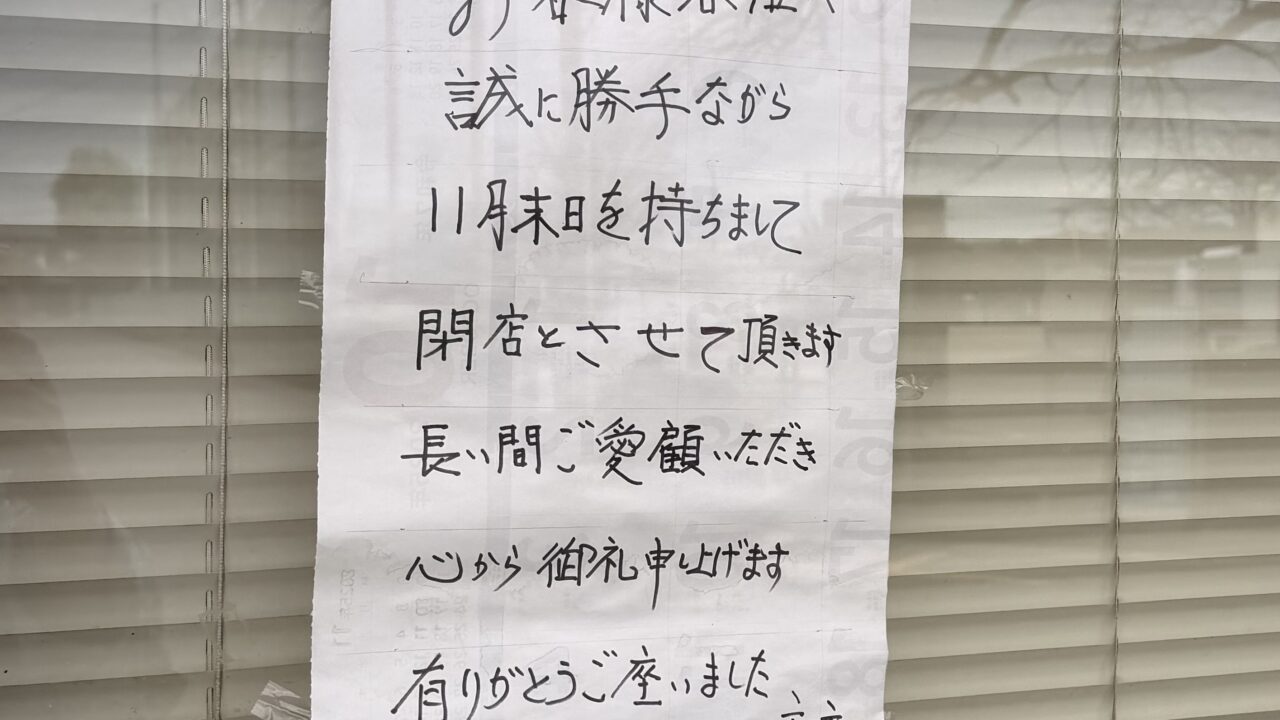 お客様各位
誠に勝手ながら
11月末日を持ちまして
閉店とさせて頂きます
長い間ご愛顧いただき
心から御礼申し上げます
有りがとうご座いました